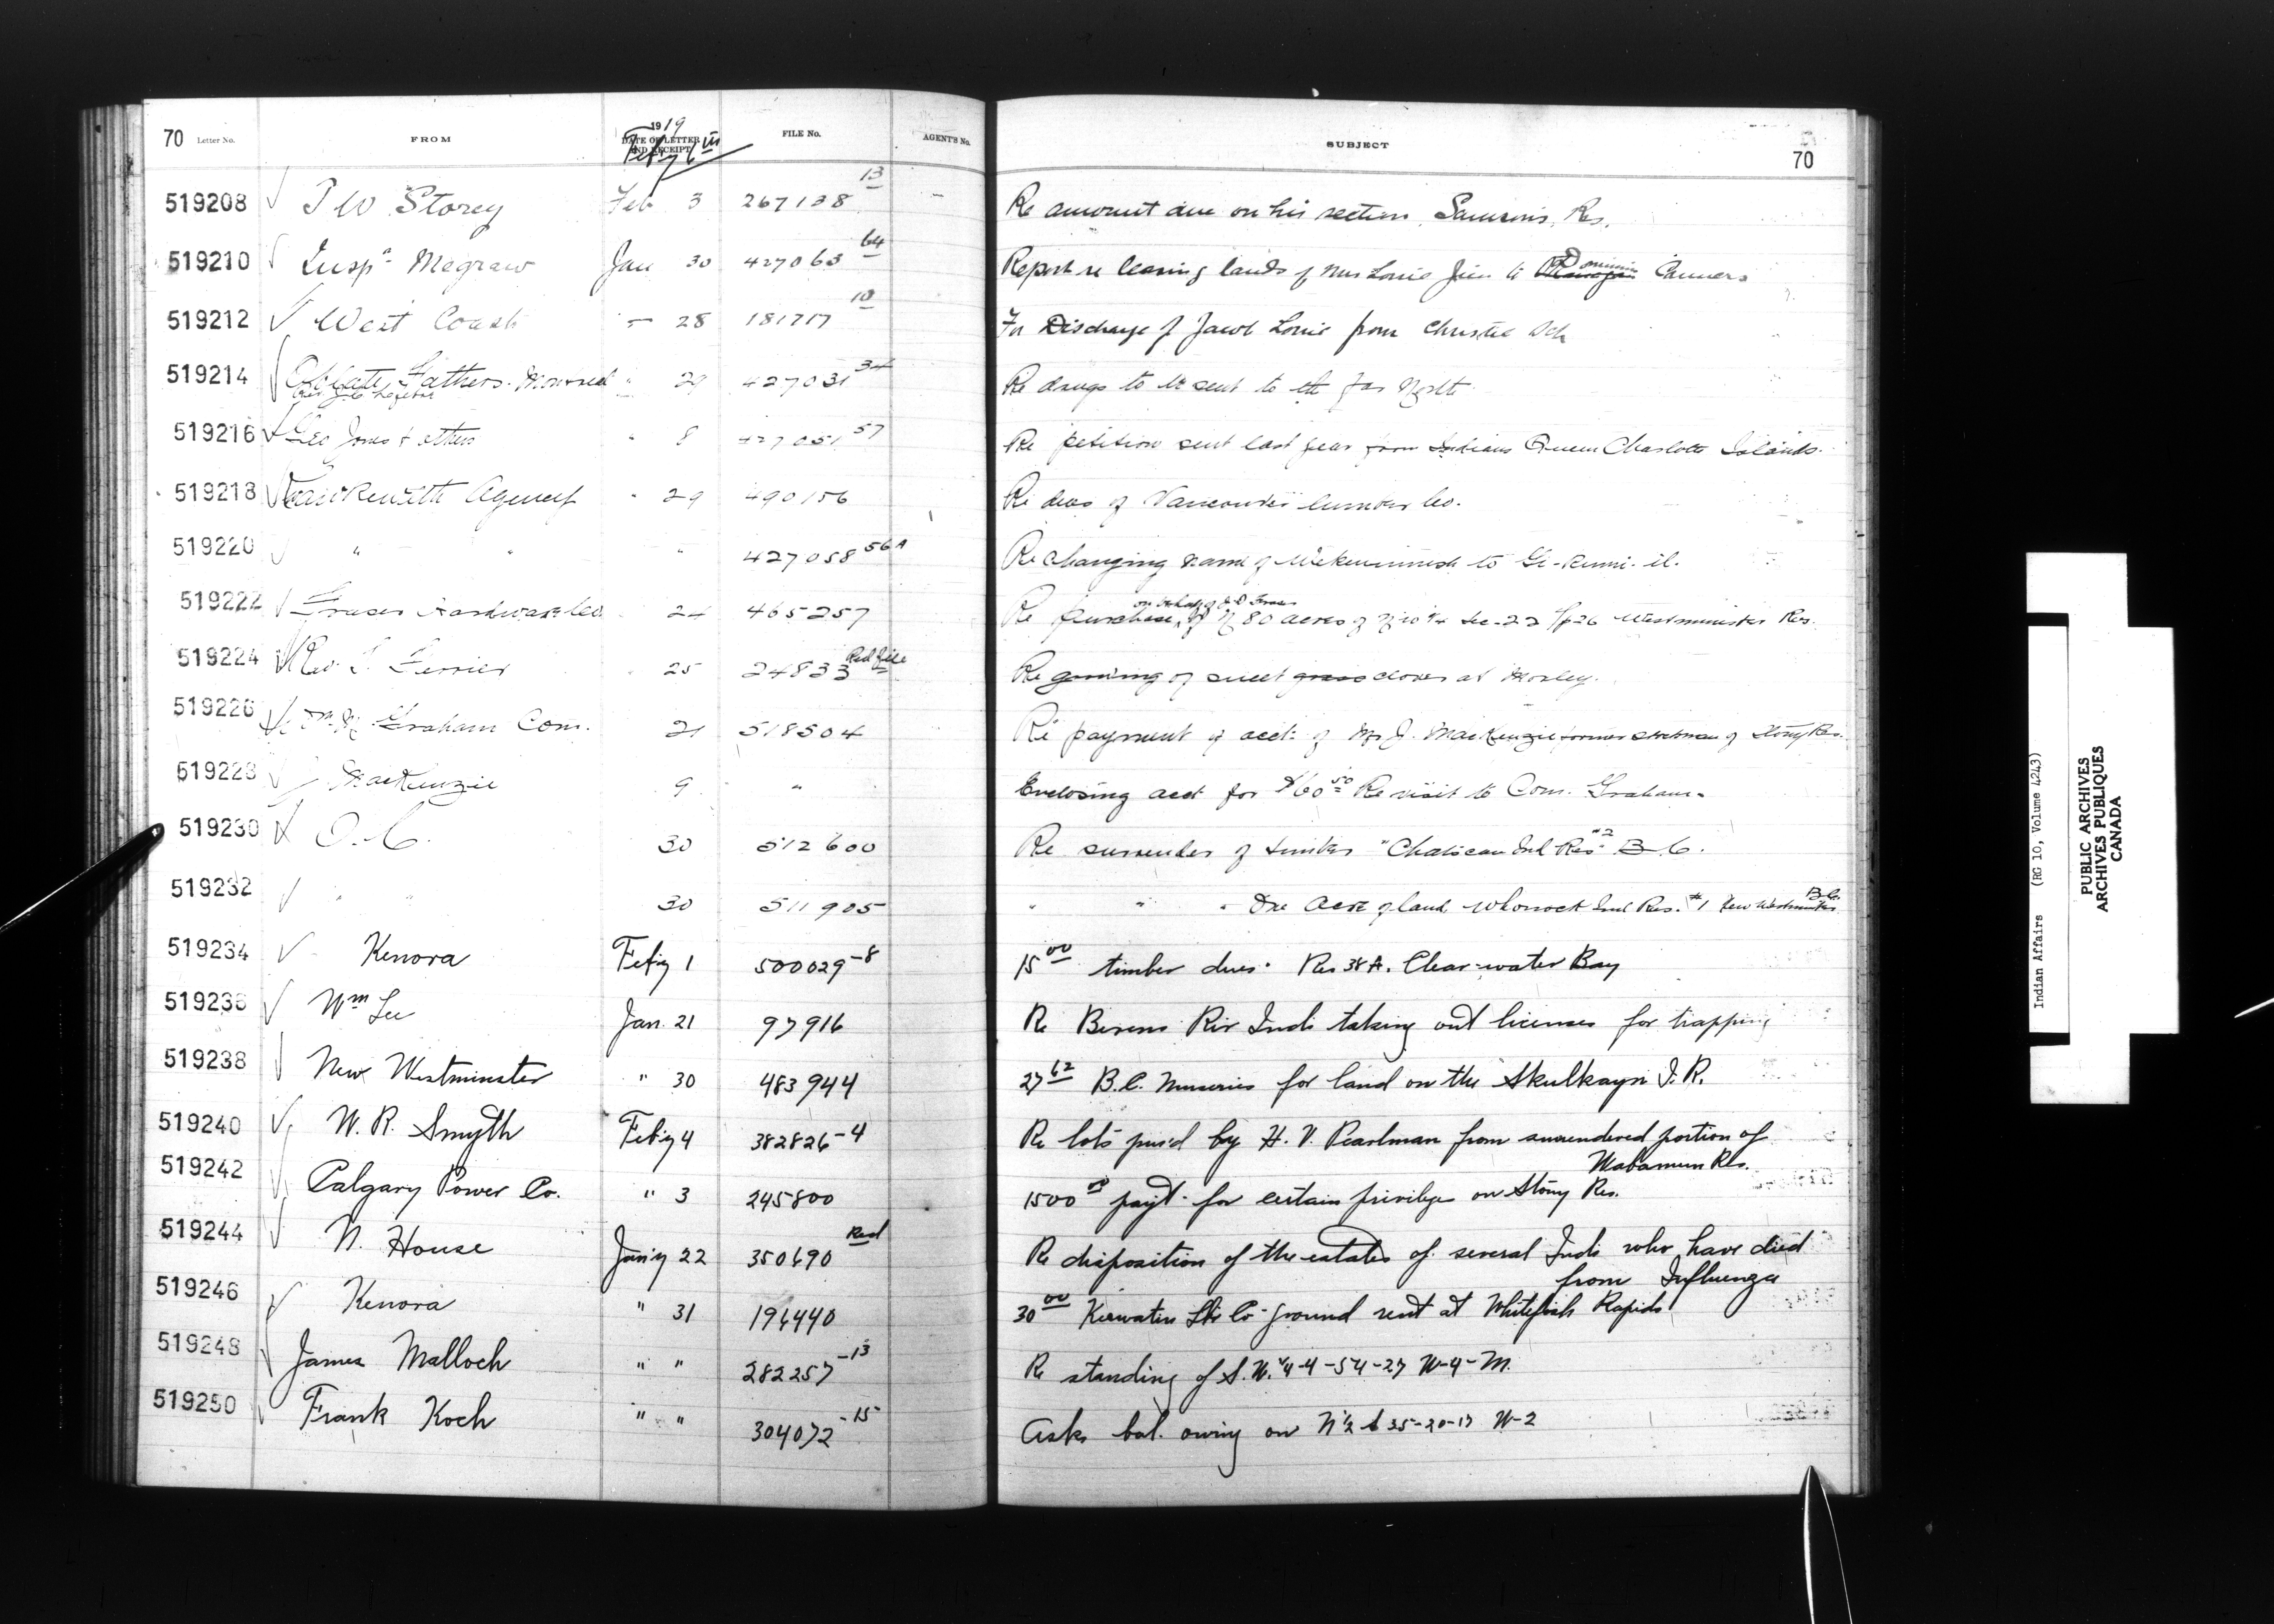 70 Letter No. FROM 1919 DATE OF LETTER AND RECEIPT Feb'y 6 FILE No. AGENT'S No. SUBJECT 70
519208 Storey Feb 3 267138 13 Re amount due on his section, Samson's Res.
519210 Insp. Megraw Jan 30 427063 64 Report re leasing lands of Mrs Louie Jim to Dominion Canners
519212 West Coast " 28 181717 10 For Discharge of Jacob Louie from Christie Sch
519214 Oblate Fathers. Montreal " 29 427031 34 Re drugs to be sent to the far North
519216 Geo Jones & others " 8 427051 57 Re petition sent last year from Indians Queen Charlotte Islands.
519218 Agency " 29 490156 Re dues of Vancouver Lumber Co.
519220 " " " 427058 56A Re changing name of to
519222 Fraser Hardware Co. " 24 465257 Re purchase, on behalf of J. D. Fraser of 80 acres of Sec-22 Tp26 Westminster Res.
519224 Rev. T. Ferrier " 25 24833 Red file Re growing of sweet grass clover at Morley.
519226 W. M. Graham Com. 21 518504 Re payment of acct: of Mr J. MacKenzie former of Stony Res.
519228 J MacKenzie 9 " Enclosing acct for $60 50 Re visit to Com. Graham.
519230 O.C. 30 512600 Re surrender of timber Ind Res. #2 B.C.
519232 " " 30 511905 " " " One Acre of land Whonock Ind Res. #1 New Westminster B.C.
519234 Kenora Feb'y 1 500029-8 15 00 timber dues. Res 38A. Clear-water Bay
519236 Wm Lee Jan. 21 97916 Re Berens Riv Inds taking out licenses for trapping
519238 New Westminster " 30 483944 27 62 B.C. Nurseries for land on the Skulkayn I.R.
519240 W. R. Smyth Feb'y 4 382826-4 Re lots pur'd by H. V. Pearlman from surrendered portion of
Wabamun Res.
519242 Calgary Power Co. " 3 245800 1500 00 pay't for certain privilege on Stony Res.
519244 N. House Jan'y 22 350690 Red Re disposition of the estates of several Inds who have died
from Influenza
519246 Kenora " 31 196440 30 00 Keewatin Lbr Co ground rent at Whitefish Rapids
519248 James Malloch " " 282257-13 Re standing of S.W. 1/4-4-54-27 W-4-M.
519250 Frank Koch " " 304072-15 Asks bal. owing on N 1/2 35-20-13 W-2
Indian Affairs (RG 10, Volume 4243)
PUBLIC ARCHIVES
ARCHIVES PUBLIQUES
CANADA